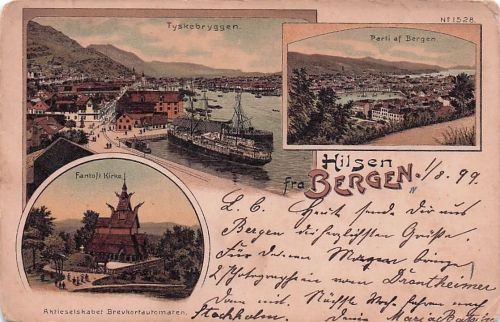 Tyskebryggen.
No 1528.
Parti af Bergen.
Hilsen
fra BERGEN.
1/8. 99
Fantoft Kirke
L. C. Heute sende Dir aus
Bergen die herzlichsten Grüße.
Für Dr. von Magen bringe
2 Photographien vom Drontheimer
Dom mit. Nächste Woche fahren nach
Stockholm. Deine
Aktieselskabet Brevkortautomaten.